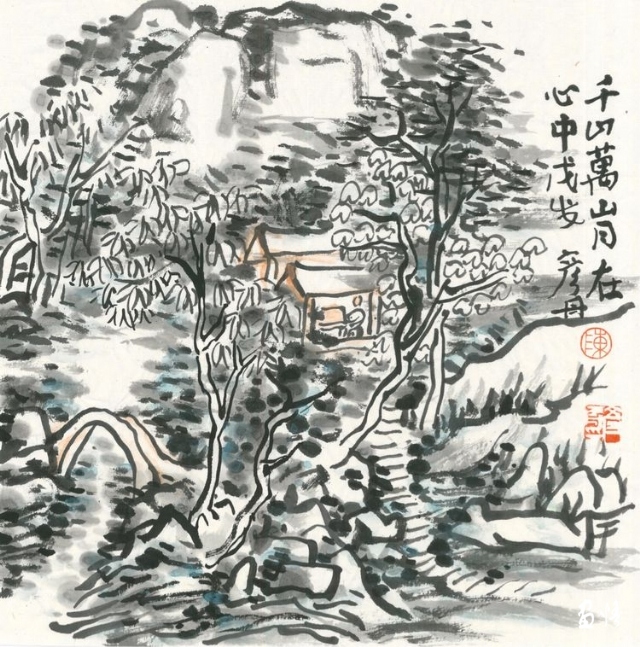 千山萬山月在
心中戊戌彦丹
陳